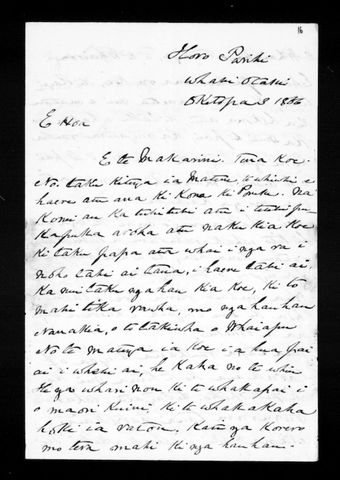 16
Horo Pariki
Whaki Otaki
Oketopa 3 1866
E Hoa
E te Makarini. Tena Koe.
No taku kitenga i a Matene te whiwhi e
haere atu ana ki Kona ki Poneke. Na
Konei au Ka tuhituhi atu i tenei pu
Kapuka aroha atu naku kia Koe
ki taku papa atu whai i nga ra i
noho tahi ai taua, i haere tahi ai.
Ka nui taku ngahau kia Koe, ki to
mahi tika rawa, mo nga hauhau
Nanakia, o te takiwha o Whaiapu
No te matenga ia Koe i a hua pai
ai i whetu ai, he Kaha no te whiu
Hega whari nou ki te whakapai i
o maori Kuini, ki te whakakaha
hoki ia ratou. Katenga Korero
mo tera mahi ki nga hauhau.